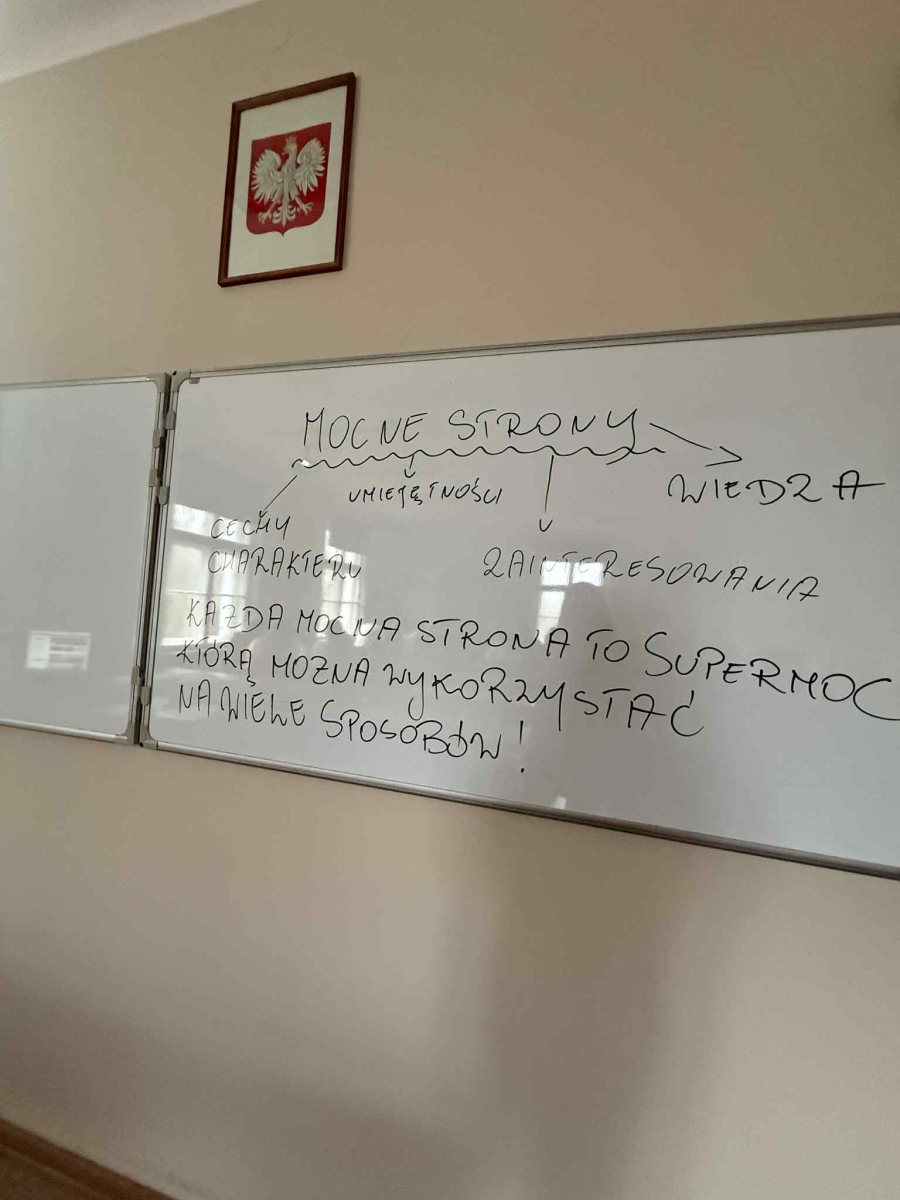 MOCNE STRONY
WIEDZA
UMIEJĘTNOŚCI
CECHY
CHARAKTERU
ZAINTERESOWANIA
KAŻDA MOCNA STRONA TO SUPERMOC
KTÓRĄ MOŻNA WYKORZYSTAĆ
NA WIELE SPOSOBÓW!